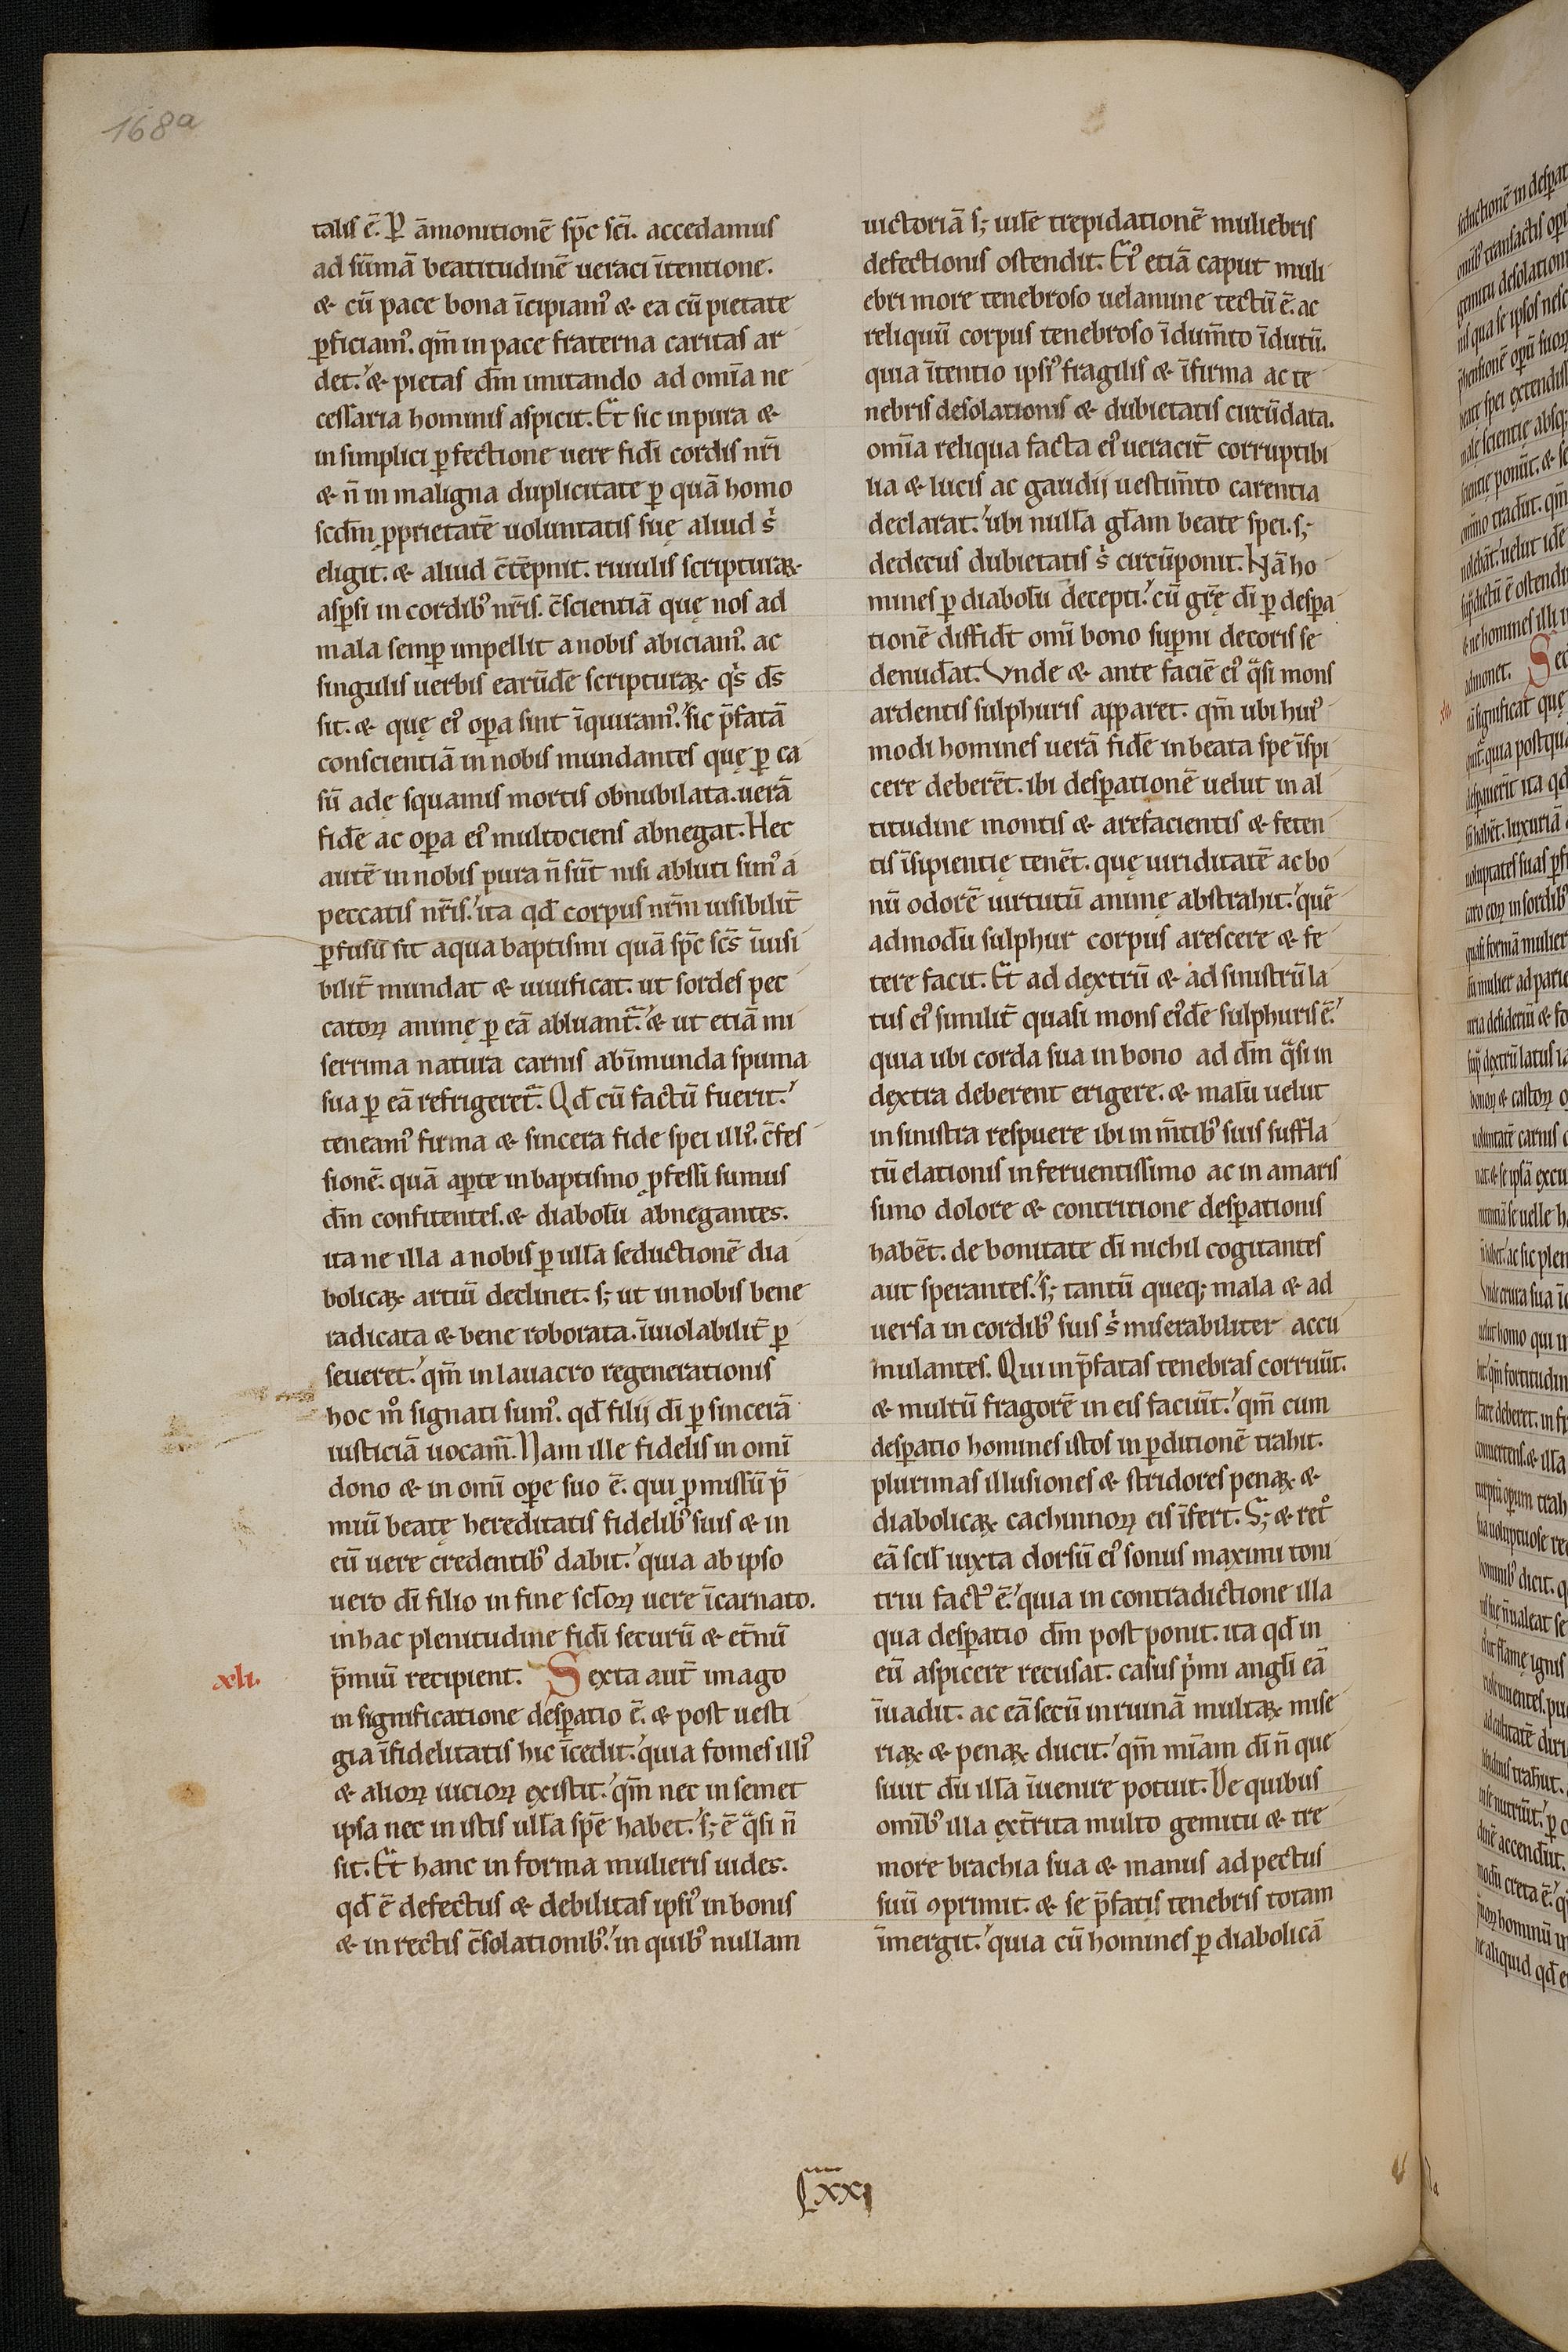 168a
talis ē. ꝑ āmonitionē sp̄c sc̄i. accedamus
ad sūmā beatitudinē ueraci ītentione.
⁊ cū pace bona īcipiam᷒ ⁊ ea cū pietate
ꝑficiam᷒. qm̄ in pace fraterna caritas ar
det.' ⁊ pietas dm̄ imitando ad om̄ia ne
cessaria hominis aspicit. Et sic in pura ⁊
in simplici ꝑfectione uere fidi cordis nr̄i
⁊ n̄ in maligna duplicitate ꝑ quā homo
scdm̄ ꝓprietatē uoluntatis suę aliud s'
eligit. ⁊ aliud c̄tēpnit. riuulis scripturaꝝ
asꝑsi in cordib᷒ nr̄is. c̄scientiā quę nos ad
mala semꝑ impellit a nobis abiciam᷒. ac
singulis uerbis earūdē scripturaꝝ qͥs ds̄
sit. ⁊ quę ei᷒ oꝑa sint īquiram᷒.' sic p̄fatā
conscientiā in nobis mundantes quę ꝑ ca
sū adę squamis mortis obnubilata. uerā
fidē ac oꝑa ei᷒ multociens abnegat. Hec
autē in nobis pura n̄ sūt nisi abluti sim᷒ a
peccatis nr̄is.' ita qđ corpus nr̄m uisibilit̄
ꝑfusū sit aqua baptismi quā sp̄c sc̄s īuisi
bilit̄ mundat ⁊ uiuificat. ut sordes pec
catoꝝ animę ꝑ eā abluant᷑.' ⁊ ut etiā mi
serrima natura carnis ab īmunda spuma
sua ꝑ eā refrigeret᷑. Qđ cū factū fuerit.'
teneam᷒ firma ⁊ sincera fide spei illi᷒. c̄fes
sionē. quā aꝑte in baptismo ꝓfessi sumus
dm̄ confitentes. ⁊ diabolū abnegantes.
ita ne illa a nobis ꝑ ullā seductionē dia
bolicaꝝ artiū declinet. s; ut in nobis bene
radicata ⁊ bene roborata. īuiolabilit̄ ꝑ
seueret.' qm̄ in lauacro regenerationis
hoc mͦ signati sum᷒. qđ filij dī ꝑ sincerā
iusticiā uocam᷑. Nam ille fidelis in omī
dono ⁊ in omī oꝑe suo ē. qui ꝓmissū p̄
miū beatę hereditatis fidelib᷒ suis ⁊ in
eū uere credentib᷒ dabit.' quia ab ipso
uero dī filio in fine scl̄oꝝ uere īcarnato.
in hac plenitudine fidī securū ⁊ et̄nū
p̄miū recipient. Sexta aut̄ imago
xli.
in significatione desꝑatio ē. ⁊ post uesti
gia īfidelitatis hic īcedit.' quia fomes illi᷒
⁊ alioꝝ uicioꝝ existit.' qm̄ nec in semet
ipsa nec in istis ullā spē habet.' s; ē qͣsi n̄
sit. Et hanc in forma mulieris uides.
qđ ē defectus ⁊ debilitas ipsi᷒ in bonis
⁊ in rectis c̄solationib᷒.' in quib᷒ nullam
uictoriā s; uilē trepidationē muliebris
defectionis ostendit. Ei᷒ etiā caput muli
ebri more tenebroso uelamine tectū ē. ac
reliquū corpus tenebroso īdum̄to īdutū.
quia ītentio ipsi᷒ fragilis ⁊ īfirma ac te
nebris desolationis ⁊ dubietatis circūdata.
om̄ia reliqua facta ei᷒ ueracit̄ corruptibi
lia ⁊ lucis ac gaudij uestim̄to carentia
declarat.' ubi nullā gl̄am beate spei. s;
dedecus dubietatis s' circūponit. Nā ho
mines ꝑ diabolū decepti.' cū gr̄ę dī ꝑ desꝑa
tionē diffidt̄ omī bono suꝑni decoris se
denudat. Vnde ⁊ ante faciē ei᷒ qͣsi mons
ardentis sulphuris apparet. qm̄ ubi hui᷒
modi homines uerā fidē in beata spe īspi
cere deberēt. ibi desꝑationē uelut in al
titudine montis ⁊ arefacientis ⁊ feten
tis īsipientię tenēt. quę uiriditatē ac bo
nū odorē uirtutū animę abstrahit.' quē
admodū sulphur corpus arescere ⁊ fe
tere facit. Et ad dextrū ⁊ ad sinistrū la
tus ei᷒ similit̄ quasi mons ei᷒dē sulphuris ē.'
quia ubi corda sua in bono ad dm̄ qͣsi in
dextra deberent erigere. ⁊ malū uelut
in sinistra respuere ibi in m̄tib᷒ suis suffla
tū elationis in feruentissimo ac in amaris
simo dolore ⁊ contritione desꝑationis
habēt. de bonitate dī nichil cogitantes
aut sperantes.' s; tantū queq; mala ⁊ ad
uersa in cordib᷒ suis s' miserabiliter accu
mulantes. Qui in p̄fatas tenebras corruūt.
⁊ multū fragorē in eis faciūt.' qm̄ cum
desꝑatio homines istos in ꝑditionē trahit.
plurimas illusiones ⁊ stridores penaꝝ ⁊
diabolicaꝝ cachinnoꝝ eis īfert. S; ⁊ retͦ
eā scil̄ iuxta dorsū ei᷒ sonus maximi toni
trui fact᷒ ē.' quia in contradictione illa
qua desꝑatio dm̄ post ponit. ita qđ in
eū aspicere recusat. casus pͥmi angl̄i eā
īuadit. ac eā secū in ruinā multaꝝ mise
riaꝝ ⁊ penaꝝ ducit.' qm̄ mīam dī n̄ que
siuit dū illā īuenire potuit. De quibus
omīb᷒ illa ext̄rita multo gemitu ⁊ tre
more brachia sua ⁊ manus ad pectus
suū oprimit. ⁊ se p̄fatis tenebris totam
īmergit.' quia cū homines ꝑ diabolicā
xxi